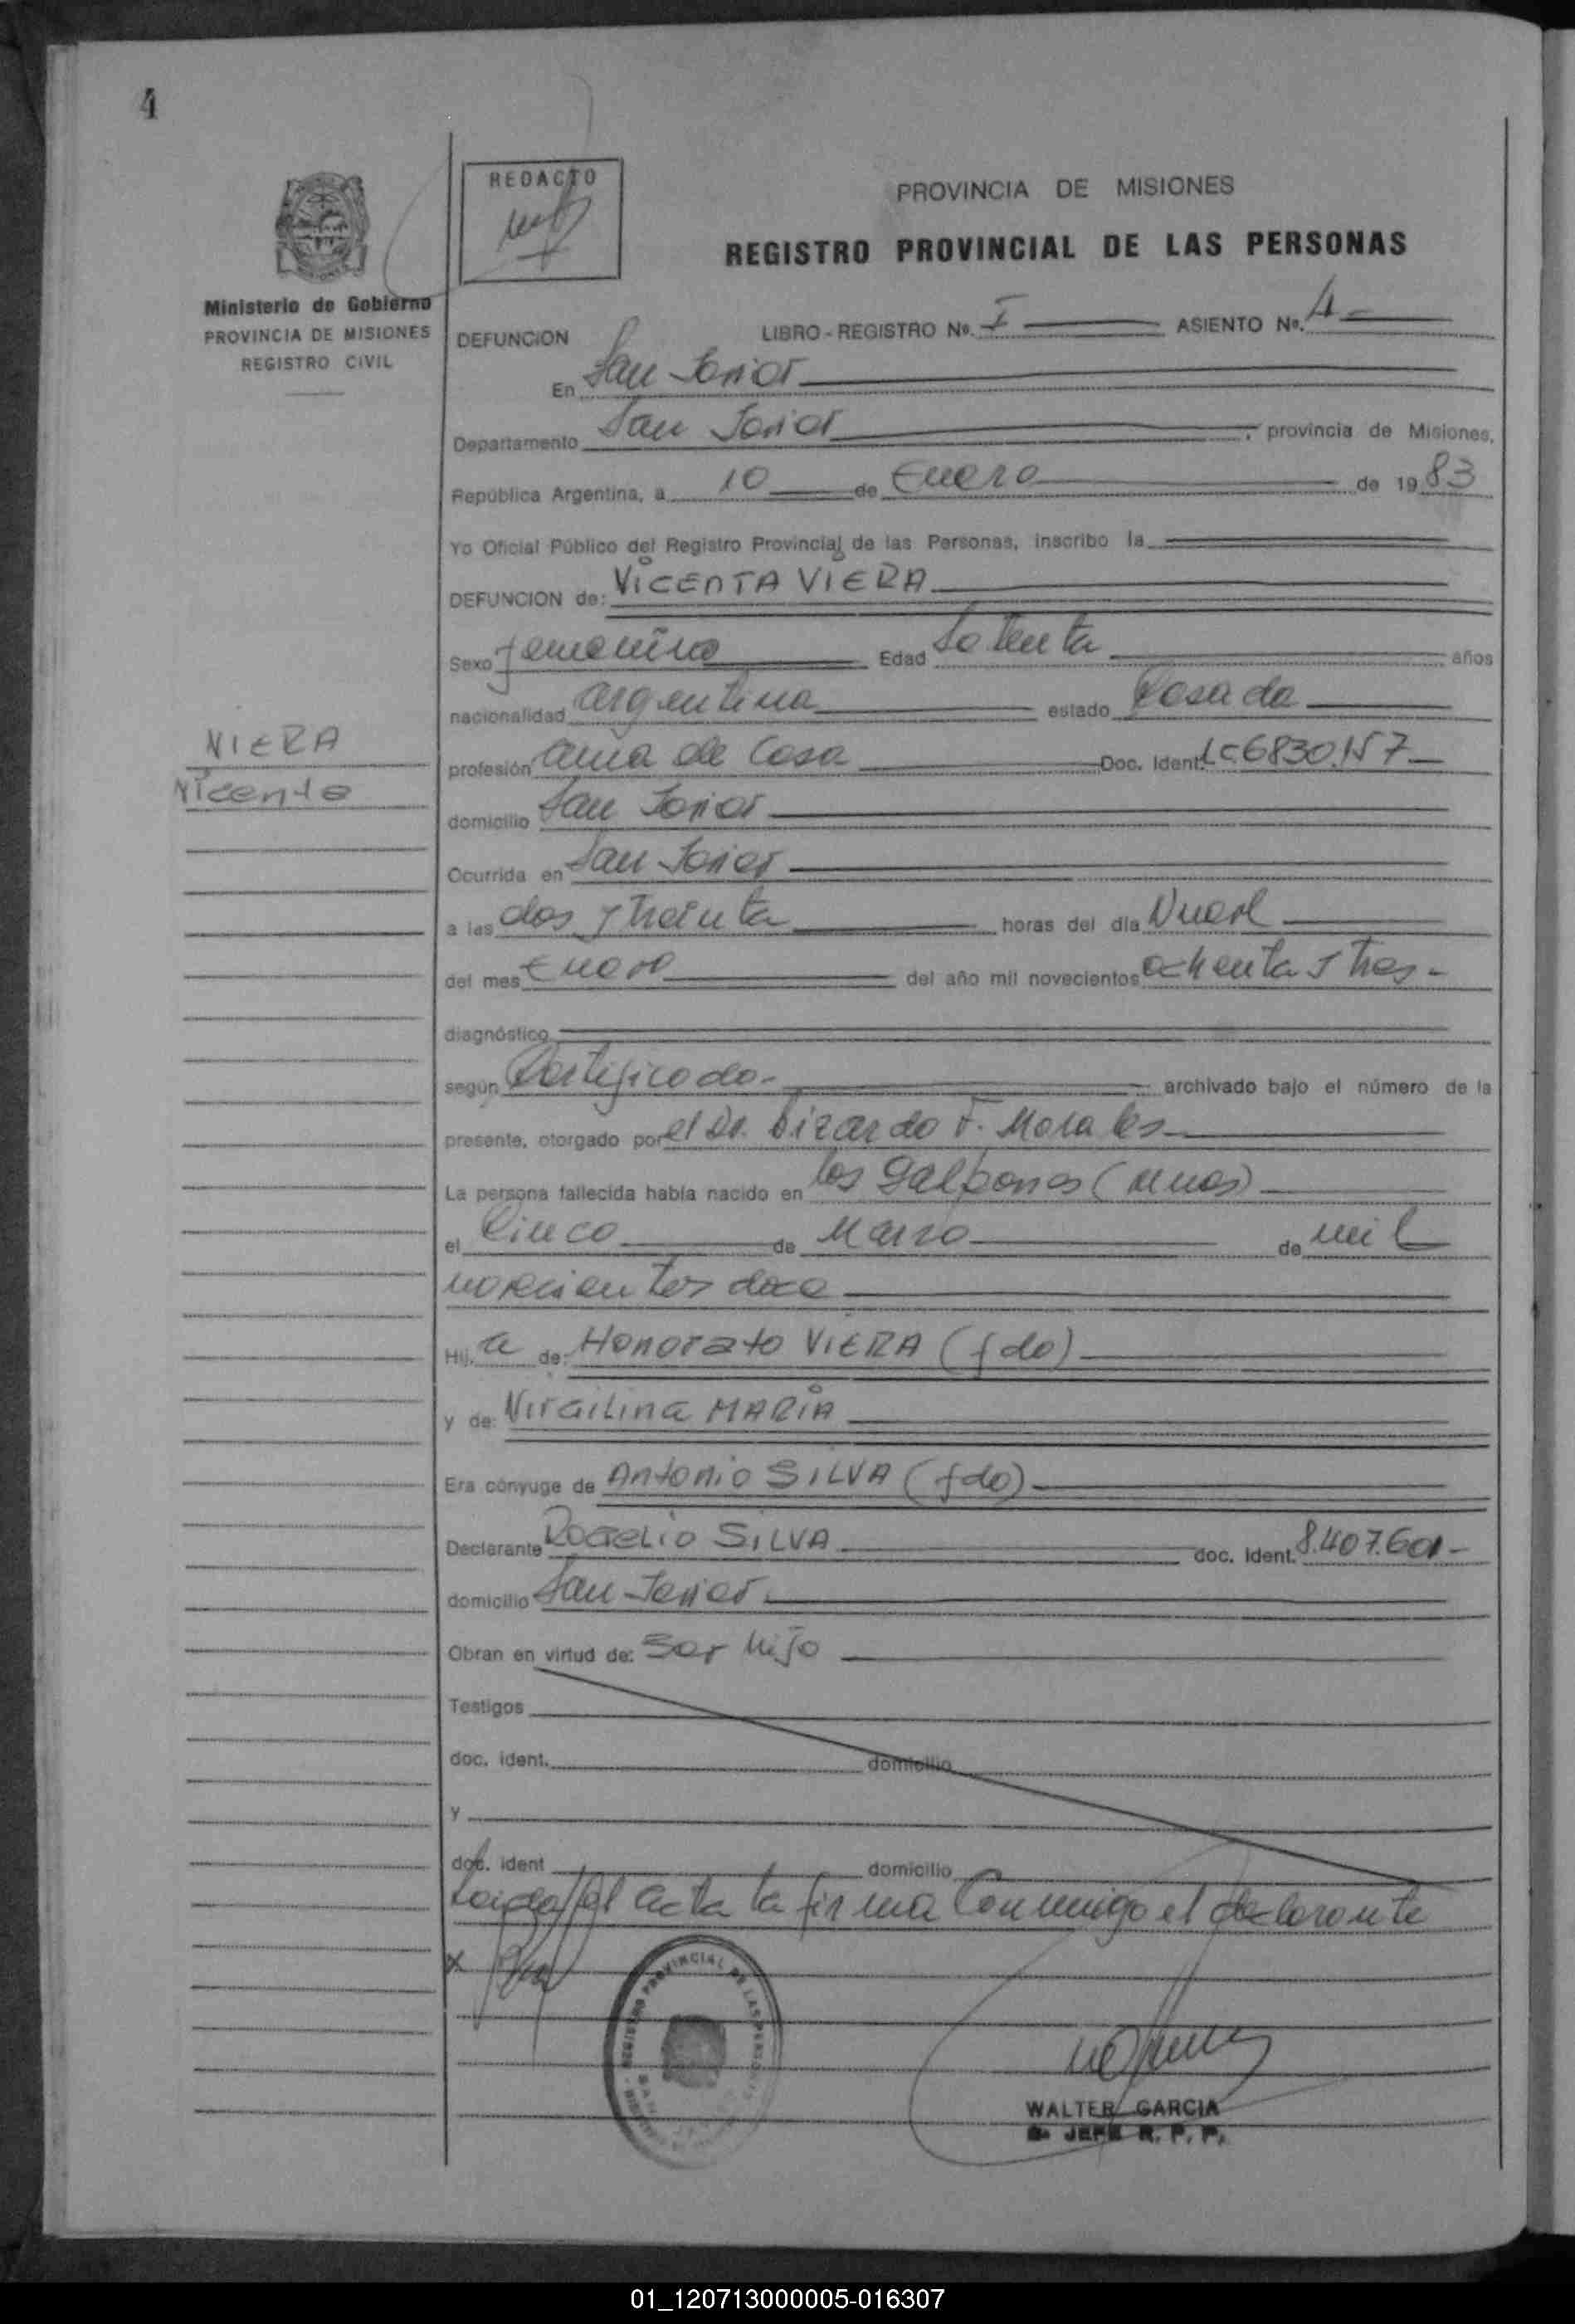 4
REDACTO
PROVINCIA DE MISIONES
REGISTRO PROVINCIAL DE LAS PERSONAS
Ministerio de Gobierno
PROVINCIA DE MISIONES
REGISTRO CIVIL
DEFUNCION LIBRO - REGISTRO Nº. I ASIENTO Nº. 4
En San Javier
Departamento San Javier, provincia de Misiones,
República Argentina, a 10 de Enero de 1983
Yo Oficial Público del Registro Provincial de las Personas, inscribo la
DEFUNCION de: VICENTA VIERA
Sexo femenino Edad Setenta años
nacionalidad argentina estado Casada
VIERA
Vicenta
profesión ama de Casa Doc. Ident. LC 6830.157
domicilio San Javier
Ocurrida en San Javier
a las dos y treinta horas del día Nueve
del mes Enero del año mil novecientos ochenta y tres -
diagnóstico
según Certificado - archivado bajo el número de la
presente, otorgado por el Dr. Lizardo F. Morales
La persona fallecida había nacido en los Galpones (Mnes)
el Cinco de Marzo de mil
novecientos doce
Hij a de: Honorato VIERA (fdo)
y de: Virgilina MARIA
Era cónyuge de Antonio SILVA (fdo)
Declarante ROGELIO SILVA doc. Ident. 8.407.601 -
domicilio San Javier
Obran en virtud de: Ser hijo
Testigos
doc. ident. domicilio
y
doc. ident domicilio
Leída el acta la firma Conmigo el declarante
x
REGISTRO PROVINCIAL DE LAS PERSONAS
WALTER GARCIA
JEFE R. P. P.
01_120713000005-016307